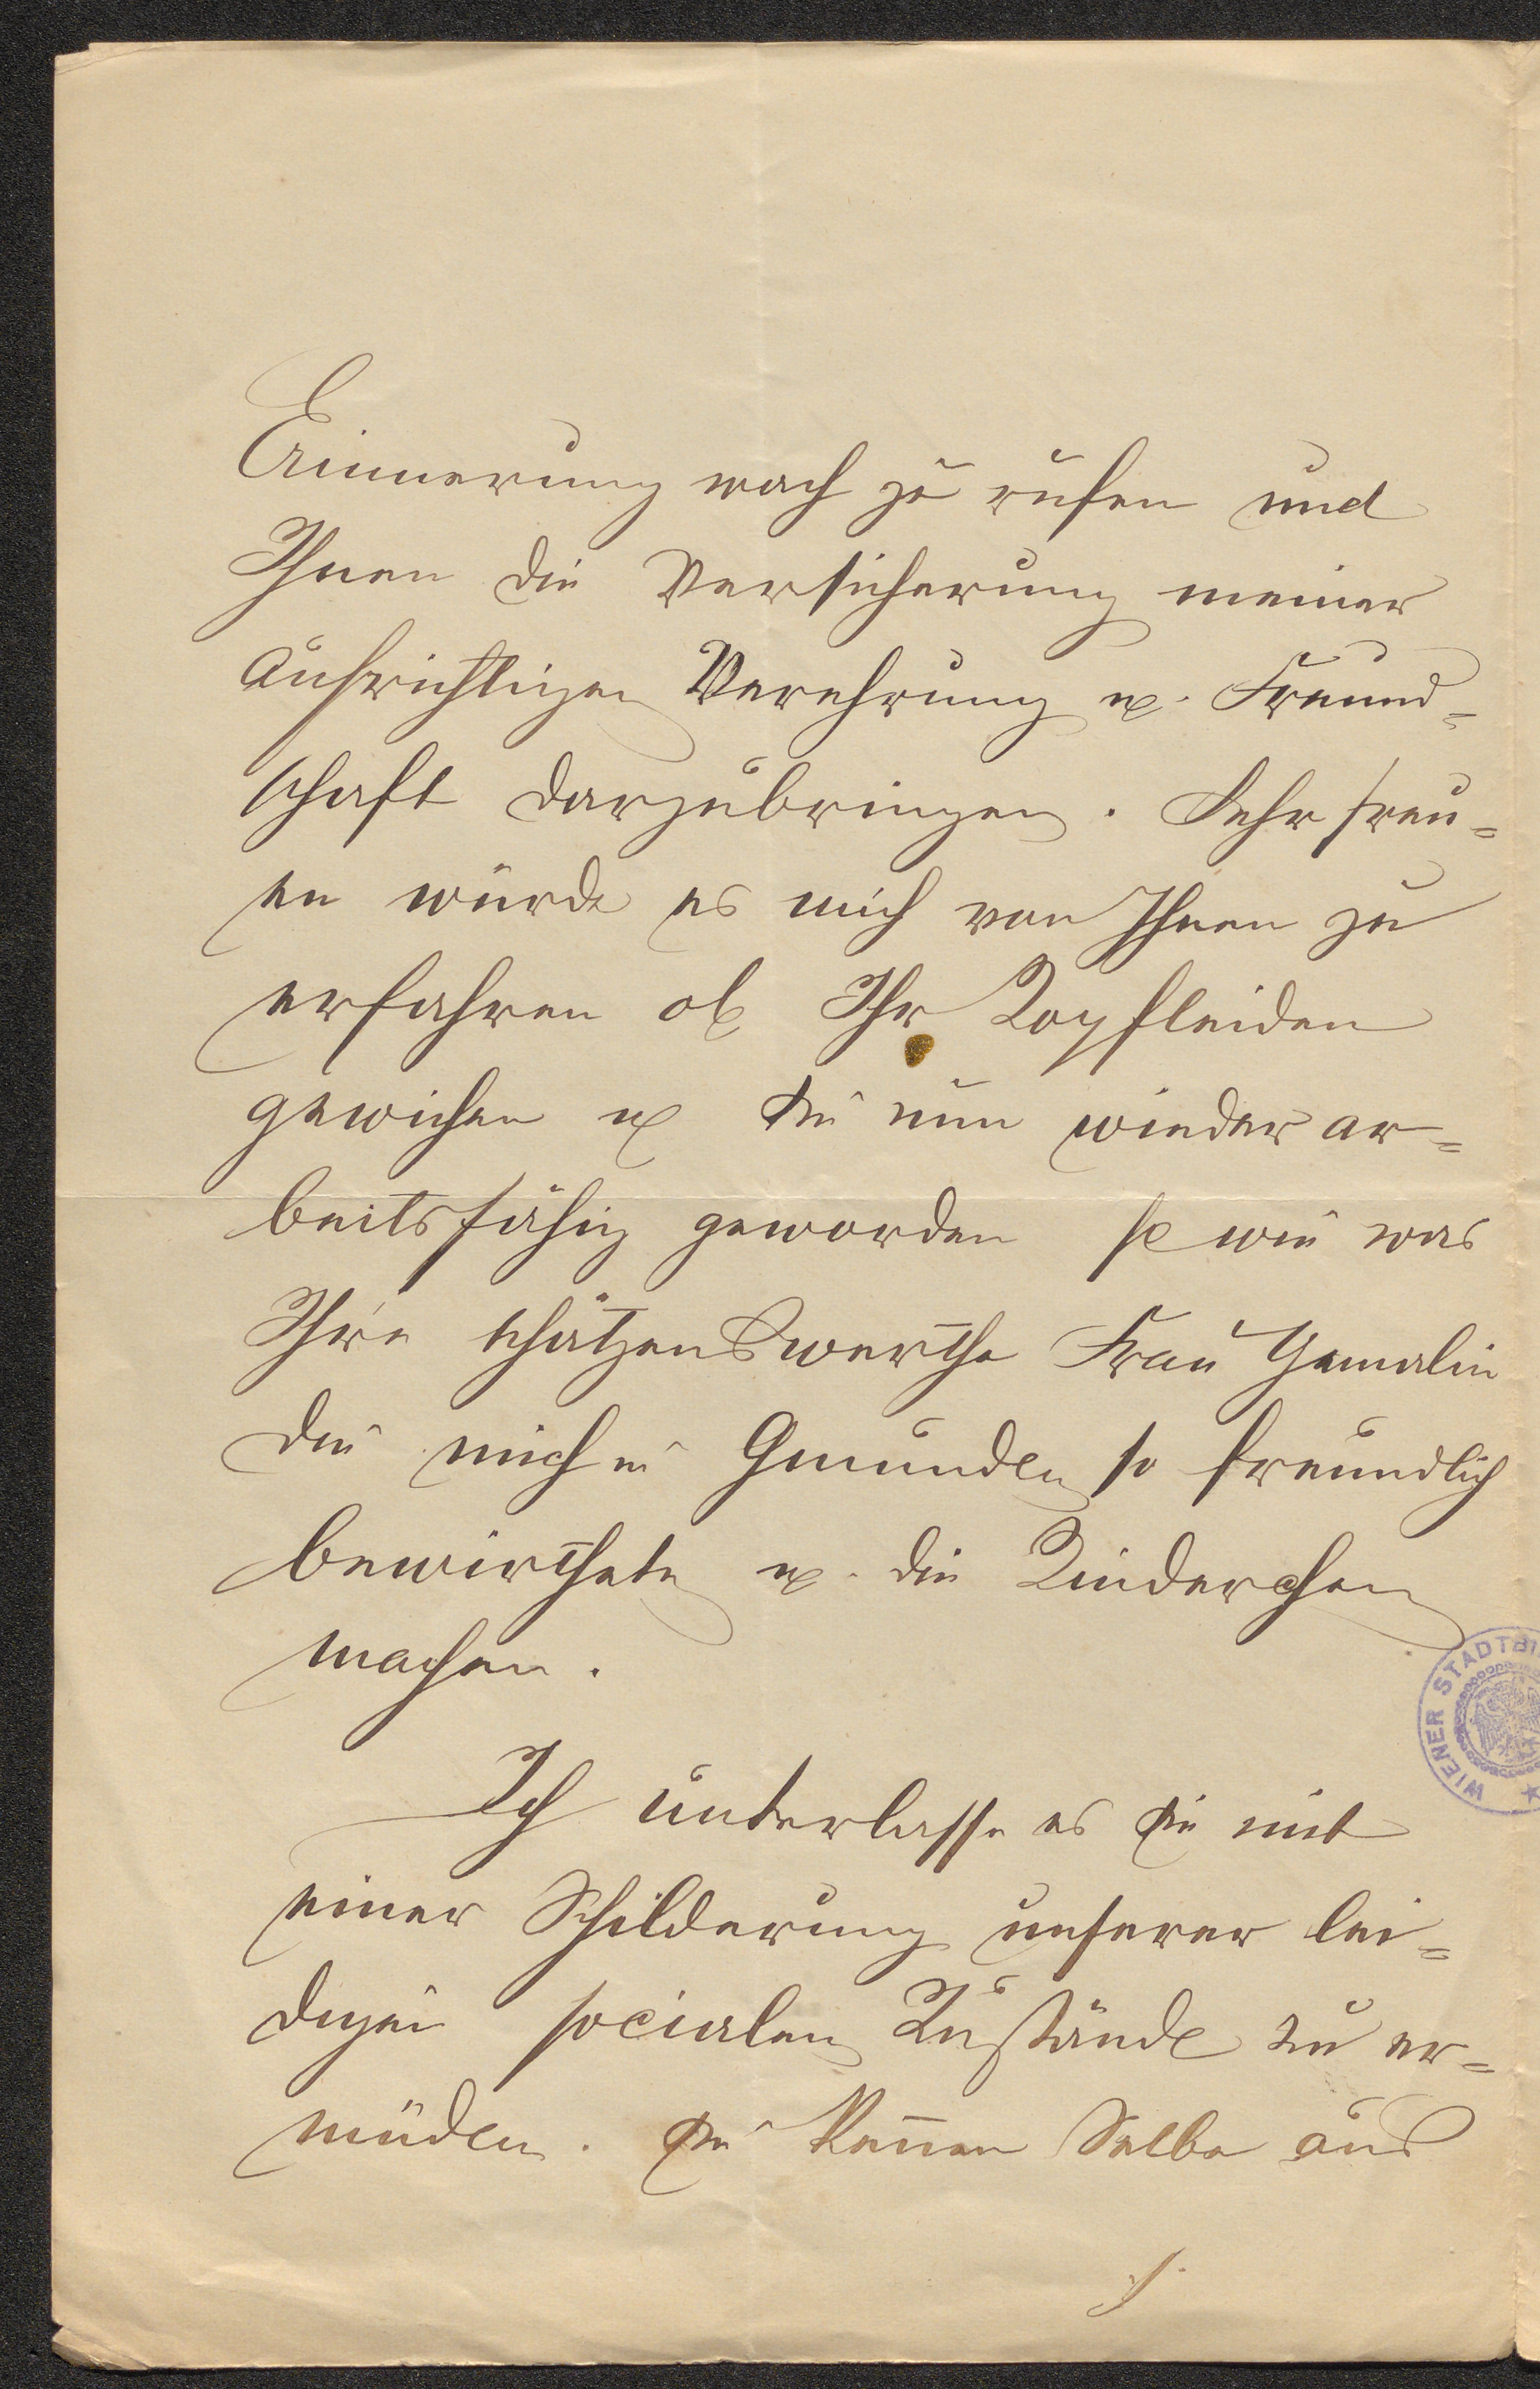 Erinnerung wach zu rufen und
Ihnen die Versicherung meiner
aufrichtigen Verehrung u. Freund=
schaft darzubringen. Sehr freu=
en würde es mich von Ihnen zu
erfahren ob Ihr Kopfleiden
gewichen u Sie nun wieder ar=
beitsfähig geworden so wie was
Ihre schätzenswerthe Frau Gemalin
die mich in Gmunden so freundlich
bewirthete u. die Kinderchen
machen.
Ich unterlasse es Sie mit
einer Schilderung unserer lei=
digen socialen Zustände zu er=
müden. Sie kennen Selbe aus
WIENER STADTBI